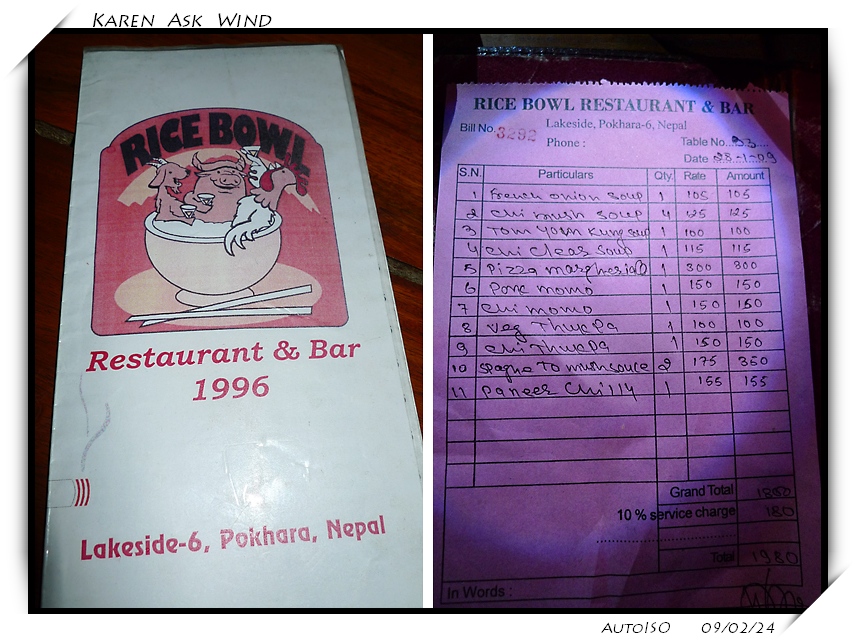 Karen Ask Wind
RICE BOWL
Restaurant & Bar
1996
Lakeside-6, Pokhara, Nepal
RICE BOWL RESTAURANT & BAR
Lakeside, Pokhara-6, Nepal
Bill No. 3292
Phone :
Table No. 23
Date
S.N. Particulars Qty. Rate Amount
1 French onion soup 1 105 105
2 chi mush soup 1 125 125
3 Tom yum kung soup 1 100 100
4 chi clear soup 1 115 115
5 Pizza margheria 1 300 300
6 Pork momo 1 150 150
7 chi momo 1 150 150
8 veg Thukpa 1 100 100
9 chi Thukpa 1 150 150
10 spaghe To mush souce 2 175 350
11 paneer chilly 1 155 155
Grand Total 1800
10 % service charge 180
Total 1980
In Words :
AutoISO 09/02/24